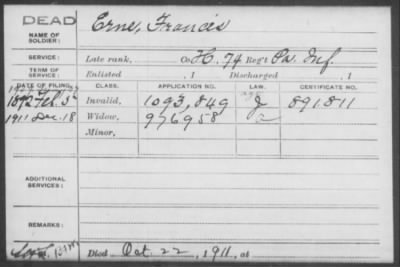 DEAD
NAME OF SOLDIER: Erne, Francis
SERVICE: Late rank, Co. H. 74 Reg't Pa. Inf.
TERM OF SERVICE: Enlisted , 1 Discharged , 1
DATE OF FILING. CLASS. APPLICATION NO. LAW. CERTIFICATE NO.
1892 Feb. 5 Invalid, 1093,849 891811
1911 Dec. 18 Widow, 976958
Minor,
ADDITIONAL SERVICES:
REMARKS:
Died Oct. 22, 1911, at